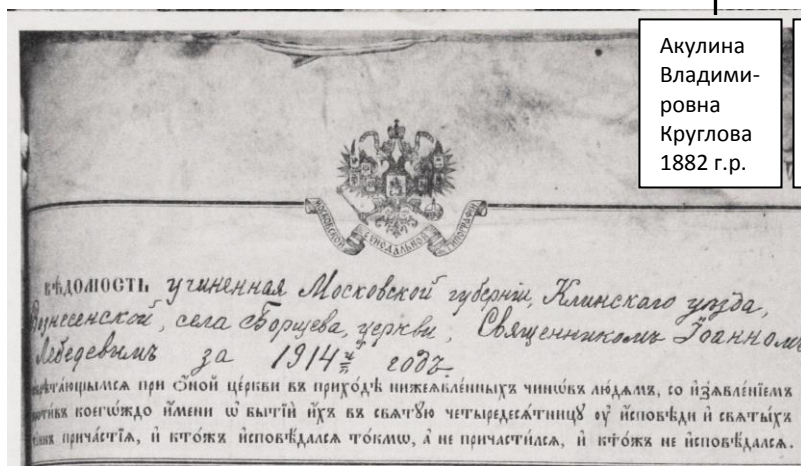 Акулина
Владими-
ровна
Круглова
1882 г.р.
МОСКОВСКОЙ СѴНОДАЛЬНОЙ ТИПОГРАФІИ
вѣдомость учиненная Московской губерніи, Клинскаго уѣзда,
Вознесенской, села Борщева, церкви, Священникомъ Іоанномъ
Лебедевымъ за 1914й годъ
ѡбрѣта́ющымсѧ при ѻ́ной це́ркви въ прихо́дѣ нижеѧвле́нныхъ чинѡ́въ лю́дѧмъ, со и҆з̾ѧвле́нїемъ
проти́въ коегѡ́ждо и҆́мени ѡ҆ бытїи́ и҆́хъ въ свѧтꙋ́ю четыредесѧ́тницꙋ ᲂу҆ и҆́сповѣди и҆ свѧты́хъ
та́инъ прича́стїѧ, и҆ кто́жъ и҆сповѣ́далсѧ то́кмѡ, а҆ не причасти́лсѧ, и҆ кто́жъ не и҆сповѣ́далсѧ.